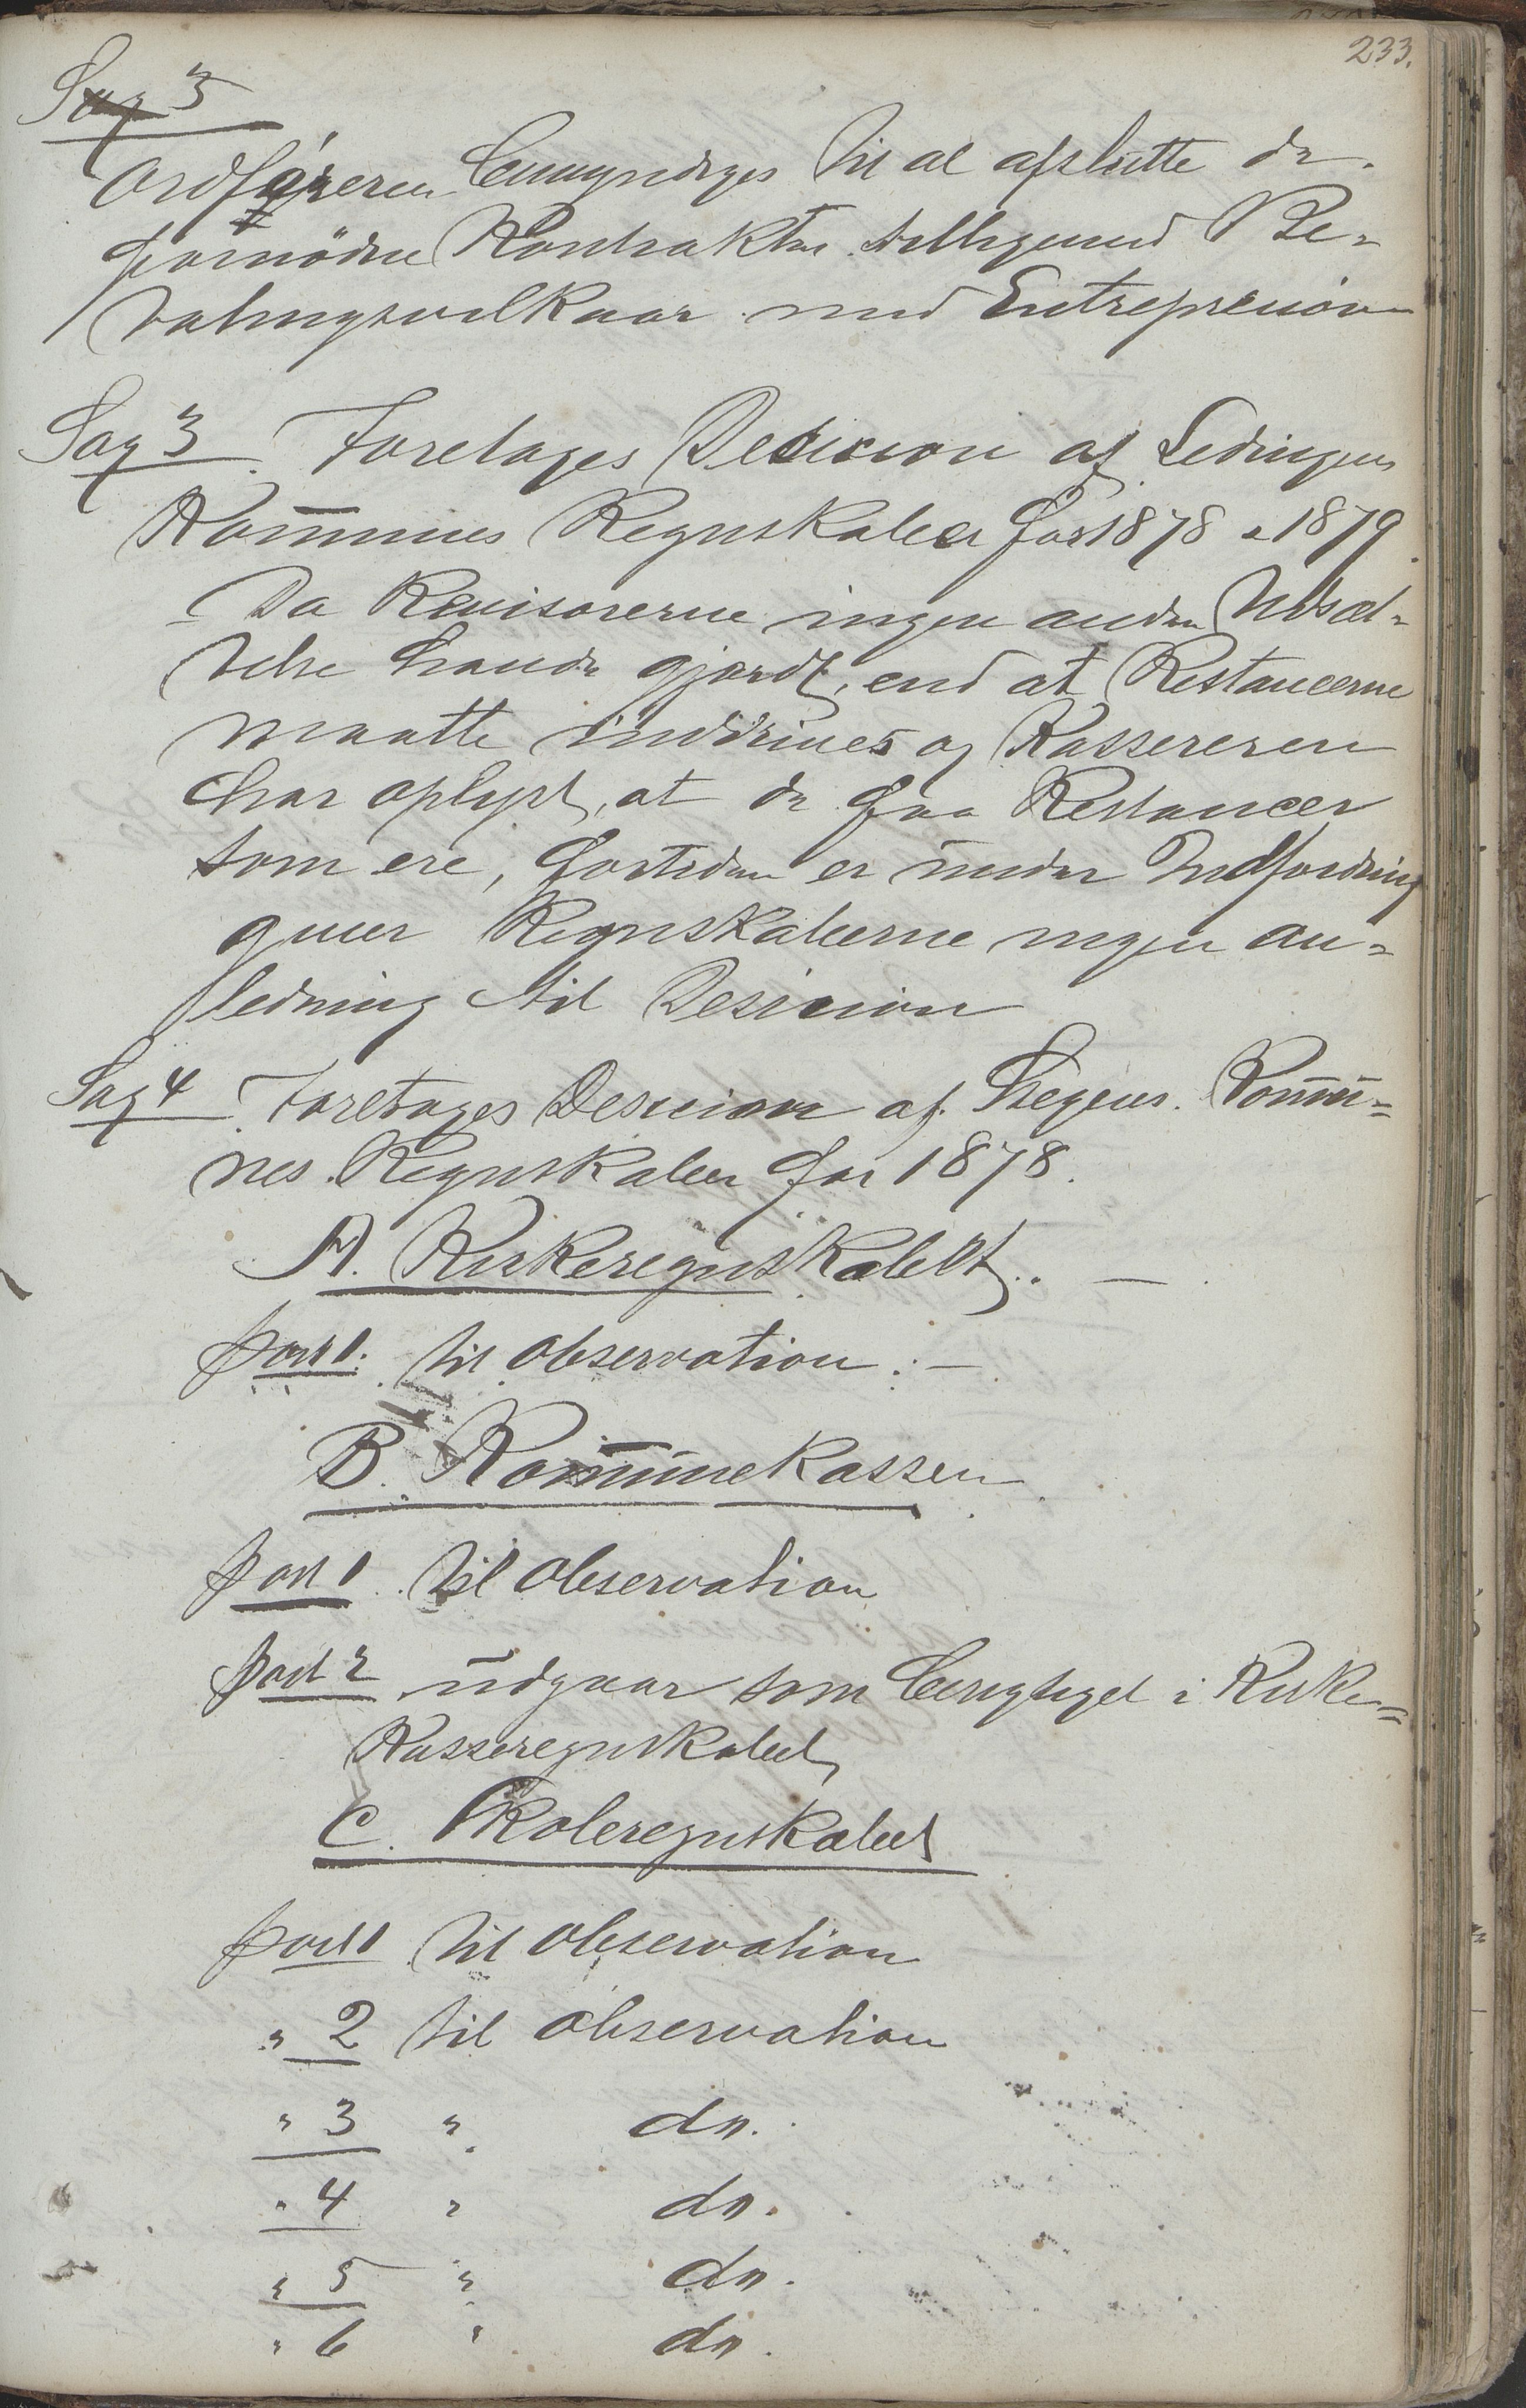 233.
Sag 3
Ordføreren bemyndiges til at afslutte de
fornødne Kontrakter tilligemed Be-
talingsvilkaar med Entreprenøren
Sag 3. Foretages Decision af Ledingens
Kommunes Regnskaber for 1878 & 1879.
Da Revisorerne ingen anden Udsæt-
telse havde gjordt, end at Restancerne
maatte inddrives og Kassereren
har oplyst, at de faa Restancer
som ere, fortiden er under Indfordring
giver Regnskaberne ingen an-
ledning til Desicion
Sag 4. Foretages Desicion af Stegens Kommu-
nes Regnskaber for 1878.
A. Kirkeregnskabet. —
post 1. til Observation. —
B. Kommunekassen
post 1. til Observation
post 2. udgaar som berigtiget i Kirke-
Kasseregnskabet
C. Skoleregnskabet
post 1 til Observation
" 2 til Observation
" 3 " do.
" 4 " do.
" 5 " do.
" 6 " do.